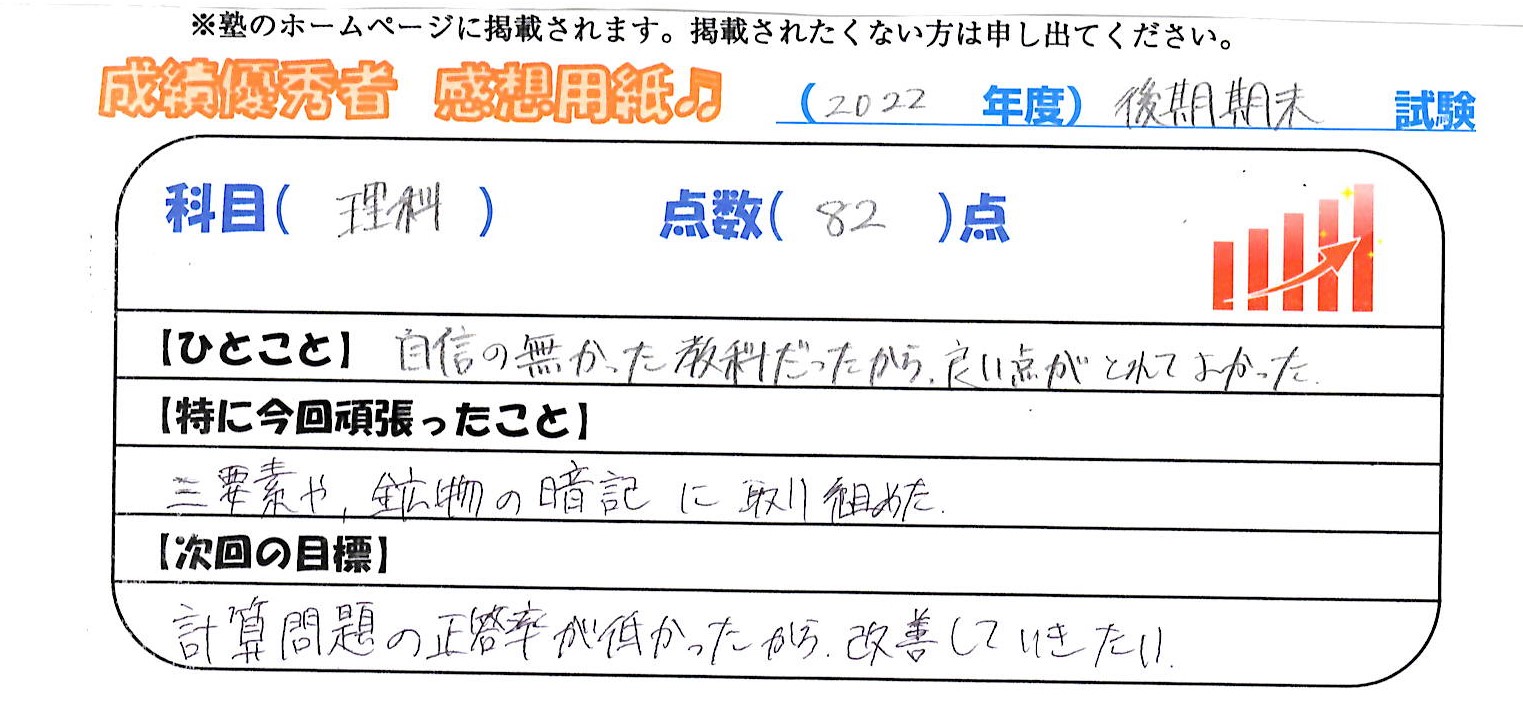 ※塾のホームページに掲載されます。掲載されたくない方は申し出てください。
成績優秀者 感想用紙♫ (2022 年度) 後期期末 試験
科目( 理科 ) 点数( 82 )点
【ひとこと】 自信の無かった教科だったから、良い点がとれてよかった.
【特に今回頑張ったこと】
三要素や, 鉱物の暗記 に 取り組めた.
【次回の目標】
計算問題の正答率が低かったから、改善していきたい.